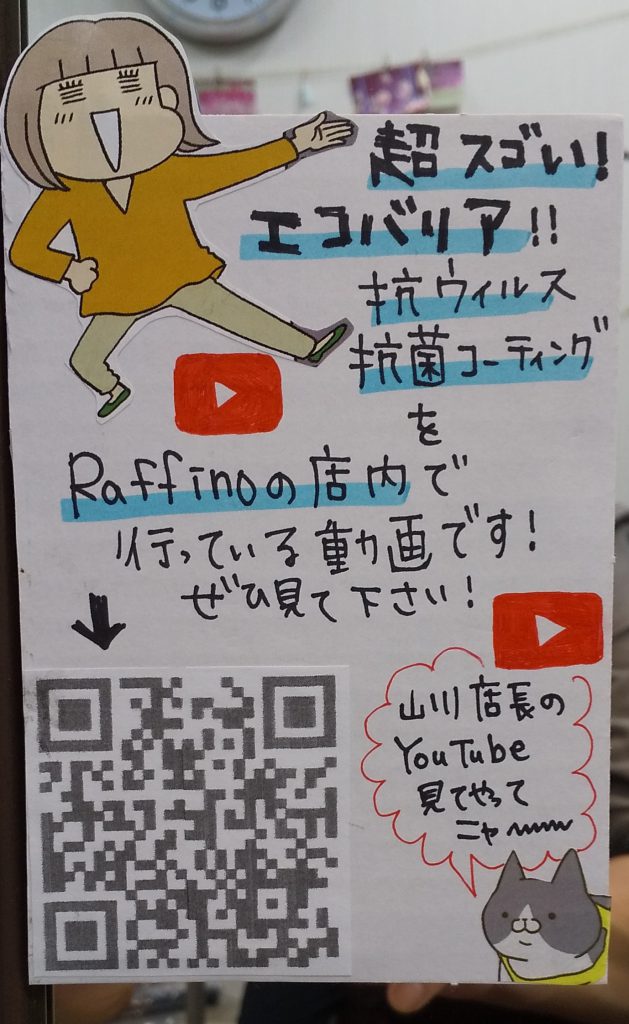 超スゴい!
エコバリア!!
抗ウィルス
抗菌コーティング
を
Raffinoの店内で
行っている動画です!
ぜひ見て下さい!
山川店長の
YouTube
見てやって
ニャ〜